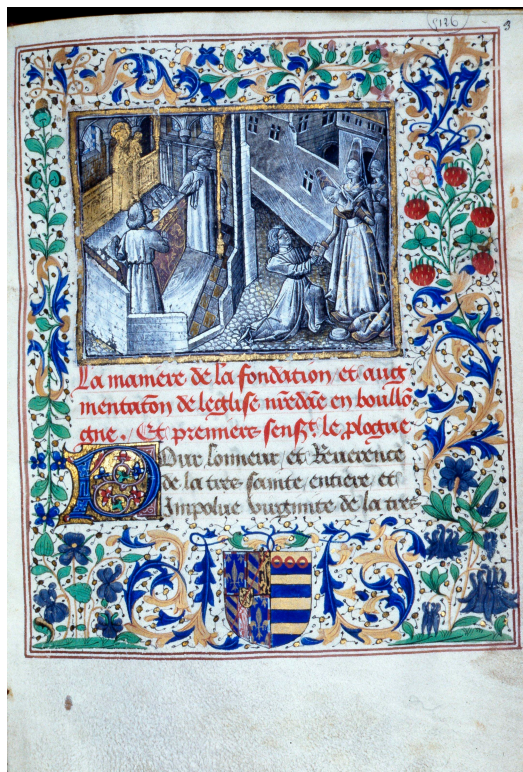 5126
3
La maniere de la fondation et aug
mentatõn de leglise nr̃e dãe en boullo
gne. Et premiers senst le plogue
Pour lonneur et Reuerence
de la tres sainte entiere et
Impolue virginite de la tres